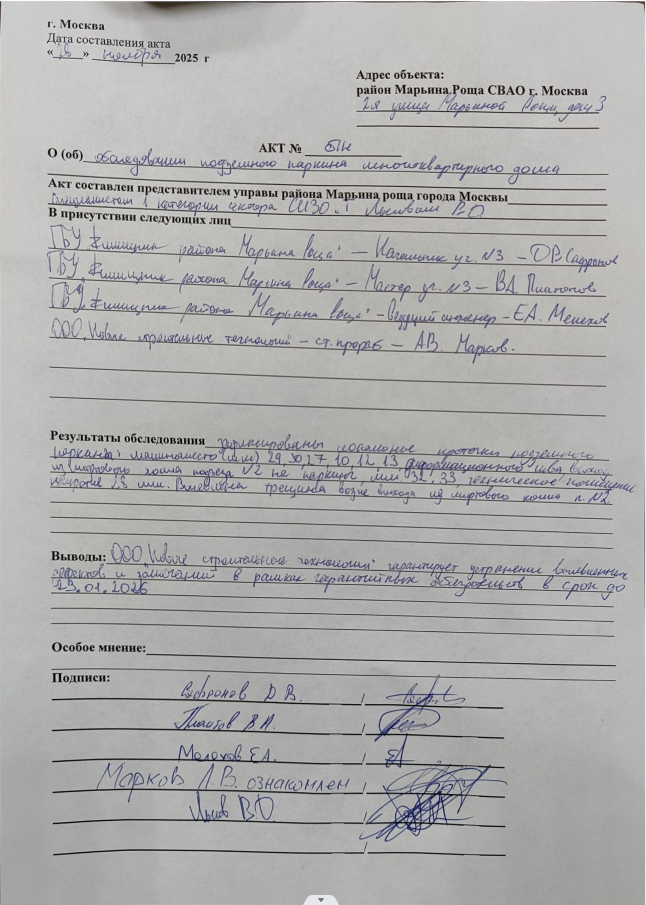 г. Москва
Дата составления акта
« » ноября 2025 г
Адрес объекта:
район Марьина Роща СВАО г. Москва
2я улица Марьиной Рощи, дом 3
АКТ № б/н
О (об) обследовании подземного паркинга многоквартирного дома
Акт составлен представителем управы района Марьина роща города Москвы
специалистом 1 категории сектора
В присутствии следующих лиц
ГБУ "Жилищник района Марьина Роща" – Начальник уч. №3 – Д.В. Сафронов
ГБУ "Жилищник района Марьина Роща" – Мастер уч. №3 – В.А.
ГБУ "Жилищник района Марьина Роща" – Ведущий инженер – Е.А.
ООО "Новые строительные технологии" – ст. прораб – А.В. Марков.
Результаты обследования зафиксированы локальные протечки подземного
паркинга: машиноместо (м/м) 29, 30, 27, 10, 12, 13, деформационного шва, выход
из лифтового холла подъезд №2 на паркинг, м/м 32, 33, техническое помещение
напротив 23 м/м. Выявлена трещина возле выхода из лифтового холла п. №2
Выводы: ООО "Новые строительные технологии" гарантирует устранение выявленных
дефектов и замечаний в рамках гарантийных обязательств в срок до
23.01.2026
Особое мнение:
Подписи:
Сафронов Д.В. /
В.А. /
Е.А. /
Марков А.В. ознакомлен /
В.О. /
/